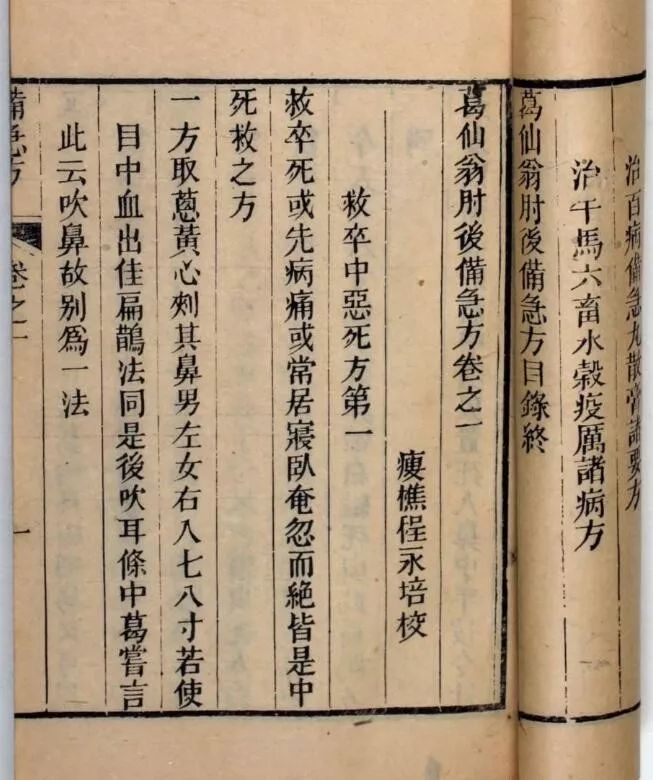 治百病備急丸散膏諸要方
治牛馬六畜水穀疫厲諸病方
葛仙翁肘後備急方目錄終
葛仙翁肘後備急方卷之一
瘦樵程永培校
救卒中惡死方第一
救卒死或先病痛或常居寢臥奄忽而絶皆是中
死救之方
一方取蔥黃心刺其鼻男左女右入七八寸若使
目中血出佳扁鵲法同是後吹耳條中葛嘗言
此云吹鼻故别爲一法
備急方
卷之一
一